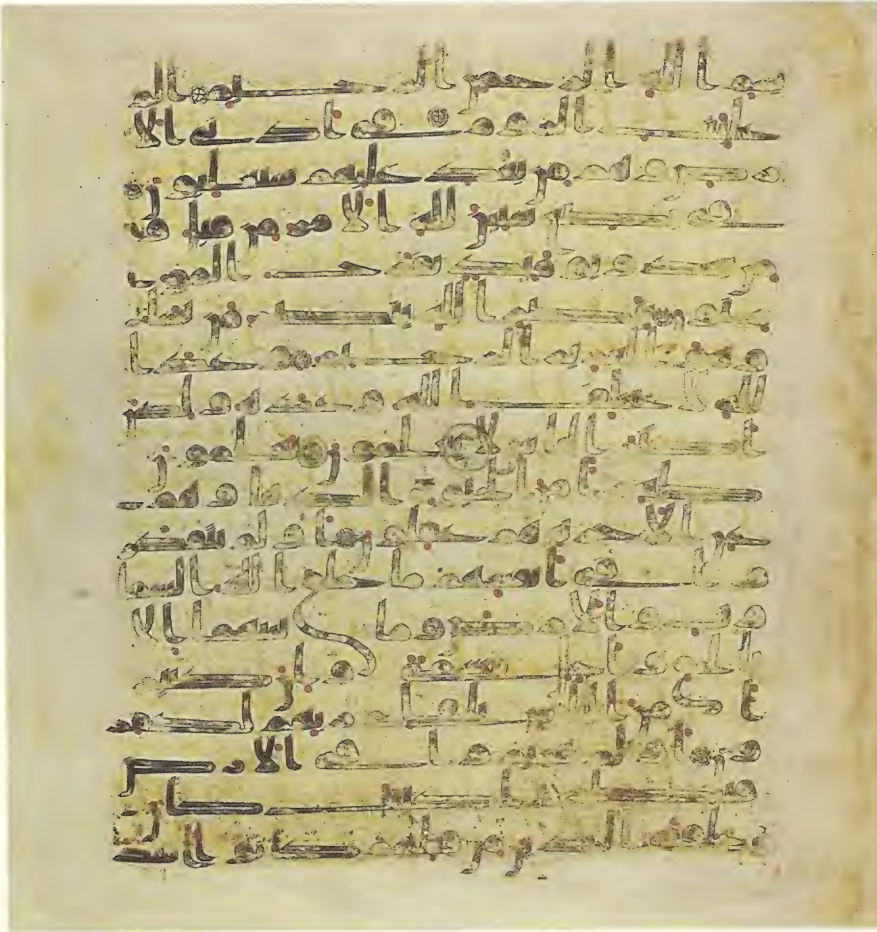 بسم الله الرحمن الرحيم الم
غلبت الروم في ادنى الا
رض وهم من بعد غلبهم سيغلبون
في بضع سنين لله الامر من قبل و
من بعد ويومئذ يفرح المومنو
ن بنصر الله ينصر من يشا
وهو العزيز الرحيم وعد ا
لله لا يخلف الله وعده ولكن
اكثر الناس لا يعلمون يعلمون
ظهرا من الحيوة الدنيا وهم
عن الاخرة هم غفلون اولم يتفكر
وا في انفسهم ما خلق الله السمو
ت والارض وما بينهما الا
بالحق واجل مسمى وان كثير
ا من الناس بلقاى ربهم لكفر
ون اولم يسيروا في الارض
فينظروا كيف كان
عقبة الذين من قبلهم كانوا اشد